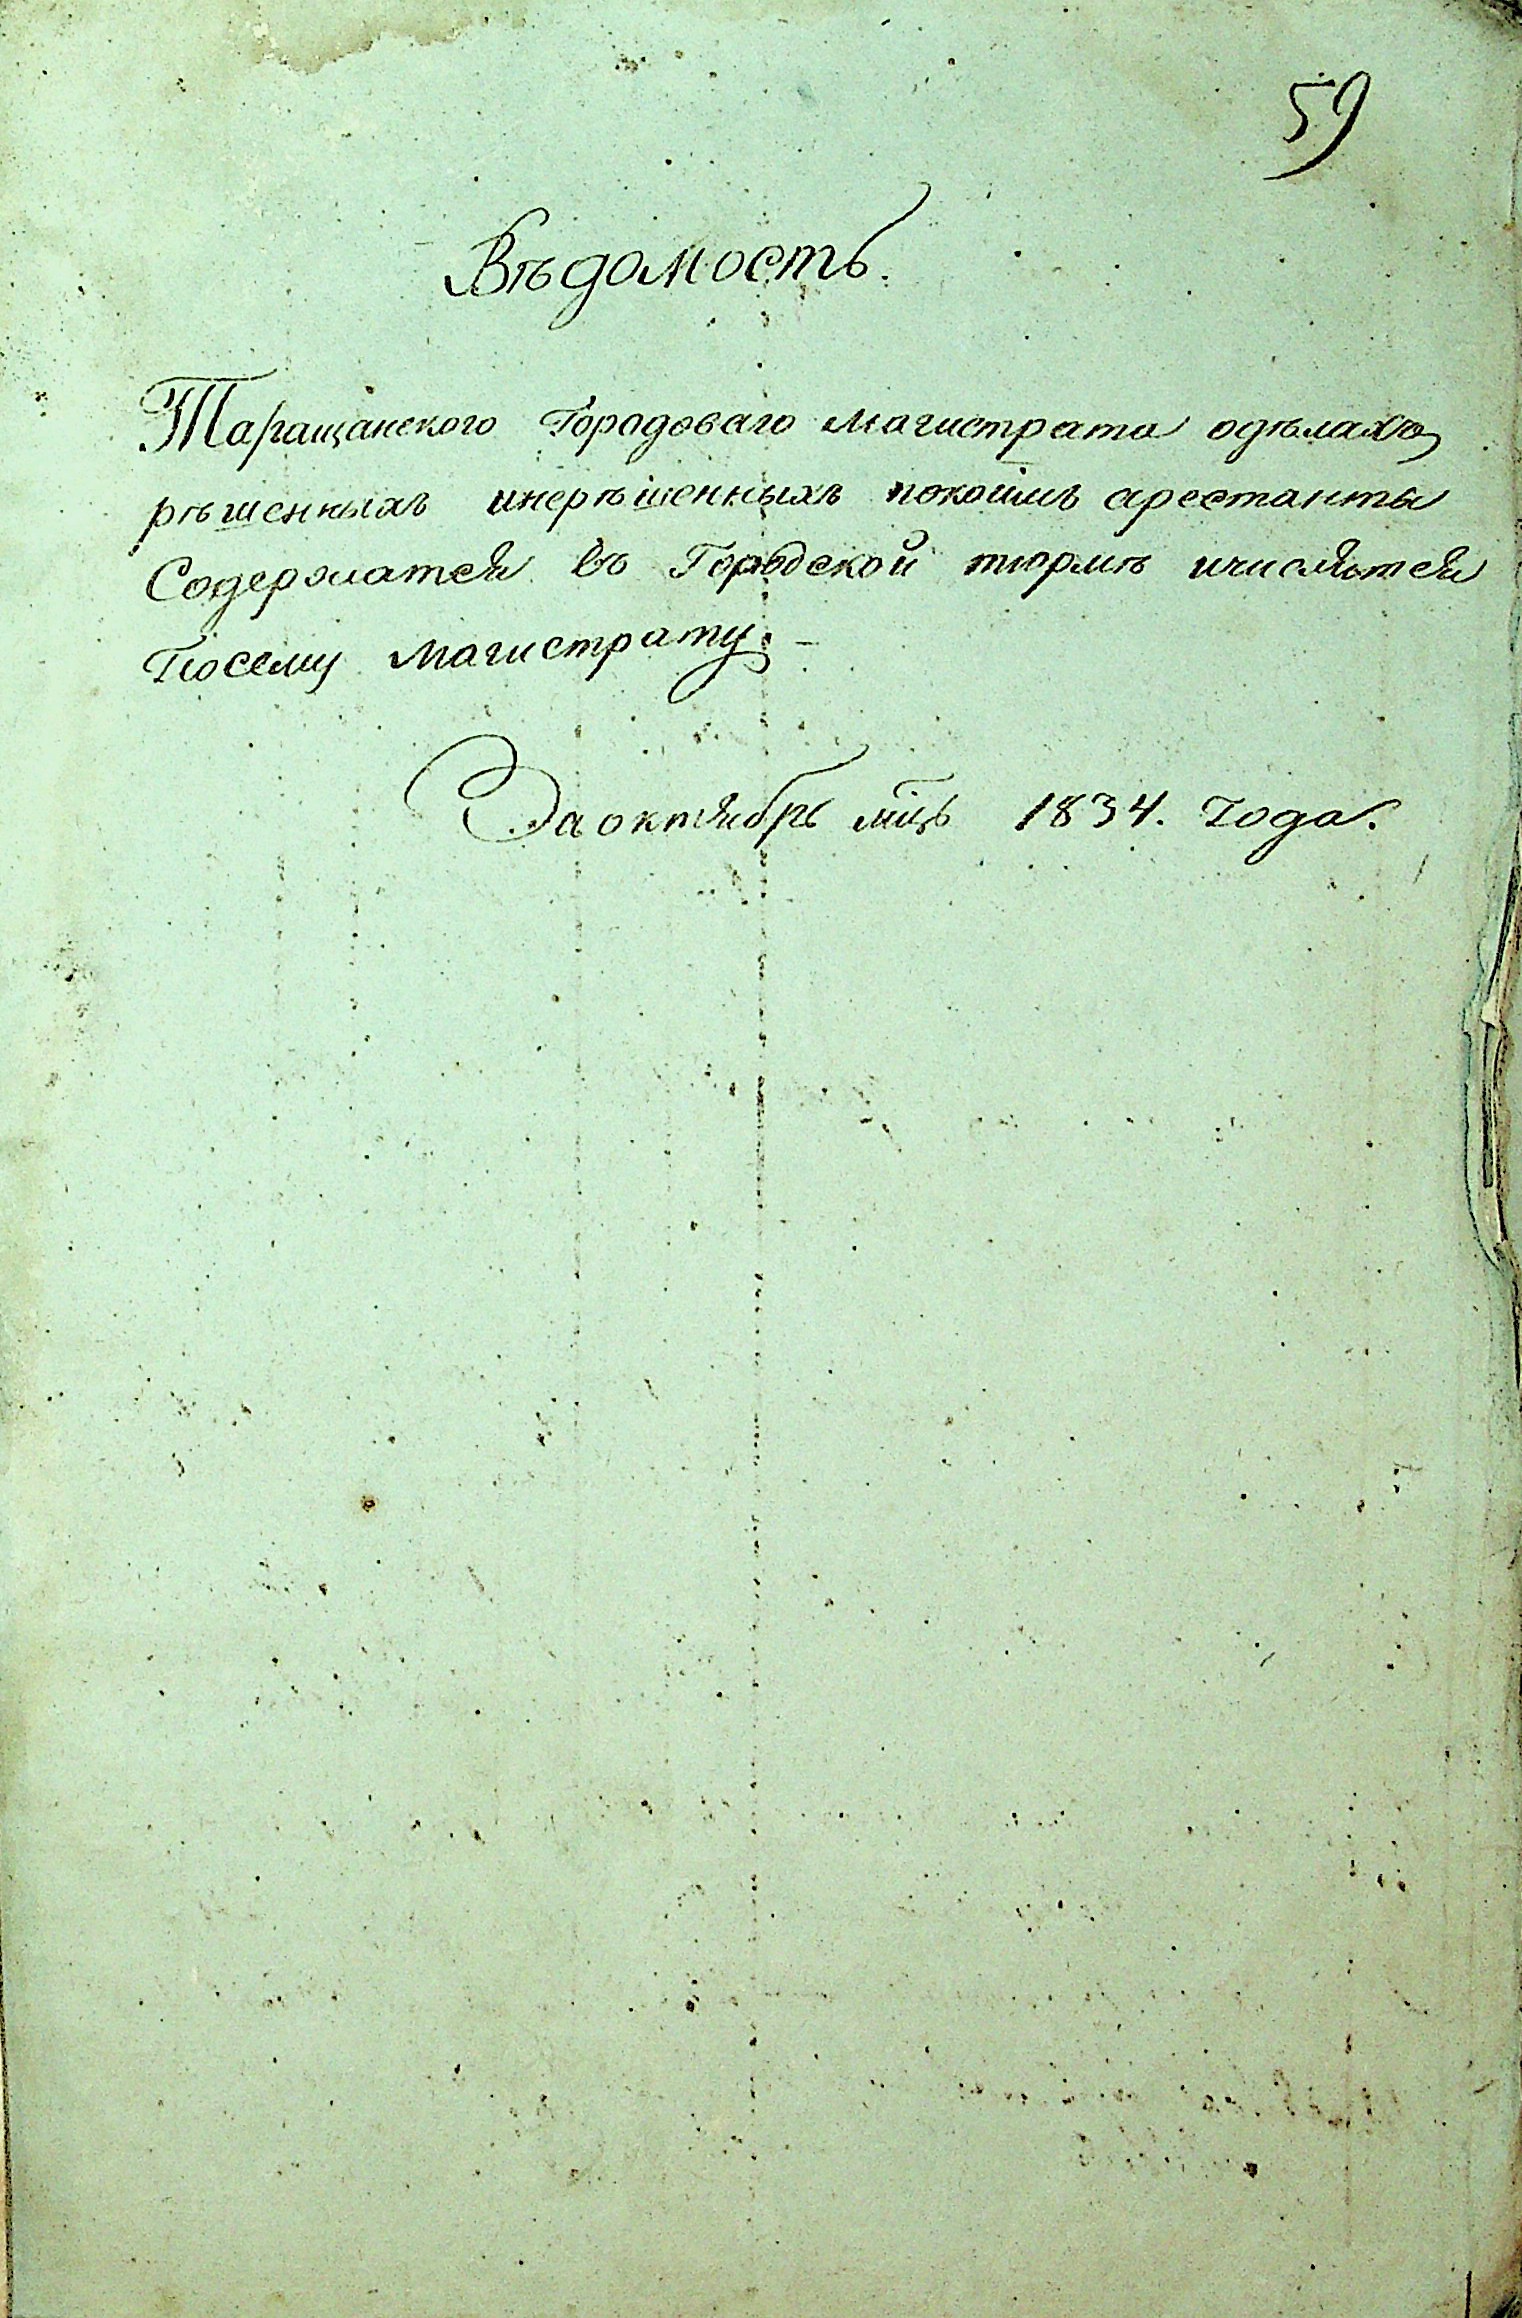 59
Вѣдомость.
Таращанского Городоваго магистрата одѣлахъ
рѣшенныхъ инерѣшенныхъ покоимъ арестанты
Содержатся въ Городской тюрмѣ ичислятся
Посему магистрату. –
За октябрь мцъ 1834. Года.